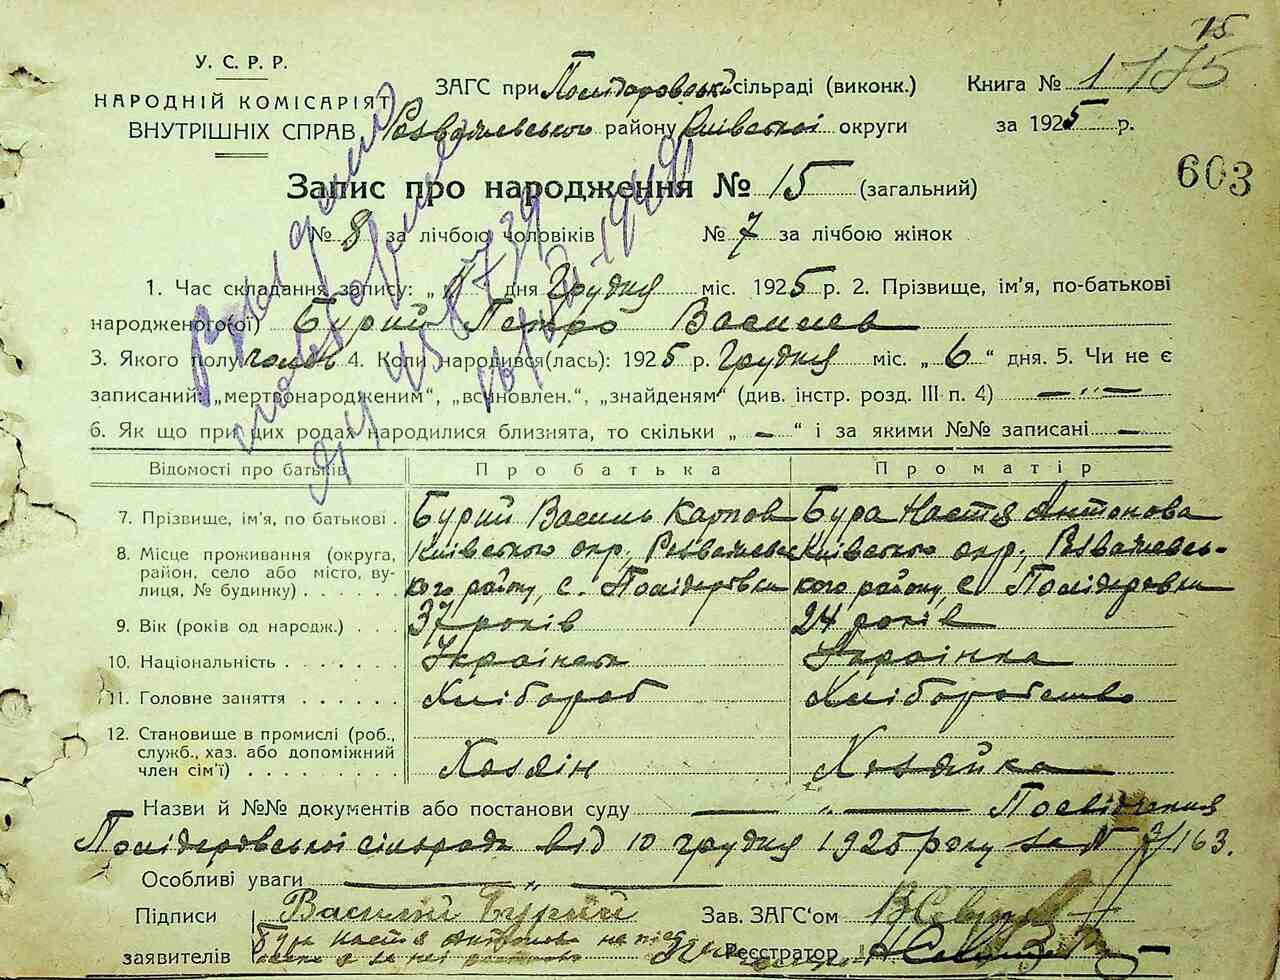 15
У. С. Р. Р.
НАРОДНІЙ КОМІСАРІЯТ
ВНУТРІШНІХ СПРАВ
ЗАГС при сільраді (виконк.)
Книга № 1 175
району Київської округи
за 1925 р.
603
Запис про народження № 15 (загальний)
№ 8 за лічбою чоловіків № 7 за лічбою жінок
1. Час складання запису: „ “ дня Грудня міс. 1925 р. 2. Прізвище, ім'я, по-батькові
народженого(ої) Бурий Петро Васильев
3. Якого полу чолов 4. Коли народився(лась): 1925 р. Грудня міс. „ 6 “ дня. 5. Чи не є
записаний: „мертвонародженим“, „всиновлен.“, „знайденям“ (див. інстр. розд. III п. 4) — „ —
6. Як що при цих родах народилися близнята, то скільки „ — “ і за якими №№ записані —
Відомості про батьків Про батька Про матір
7. Прізвище, ім'я, по батькові . Бурий Василь Карпов Бура Настя Антонова
8. Місце проживання (округа, район, село або місто, вулиця, № будинку) . . . . .
Київського окр., Розважевсь Київського окр., Розважевсь-
кого району, с. кого району, с.
9. Вік (років од народж.) . . . 37 років 24 років
10. Національність . . . . . . . Українець Українка
11. Головне заняття . . . . . . Хлібороб Хліборобство
12. Становище в промислі (роб.,
служб., хаз. або допоміжний
член сім'ї) . . . . . . . . . Хозяїн Хозяйка
Назви й №№ документів або постанови суду — „ — Посвідчення
сільради від 10 грудня 1925 року за № /163.
Особливі уваги — „ —
Підписи Василий Бурий Зав. ЗАГС'ом
заявителів Бура Настя Антонова Реєстратор